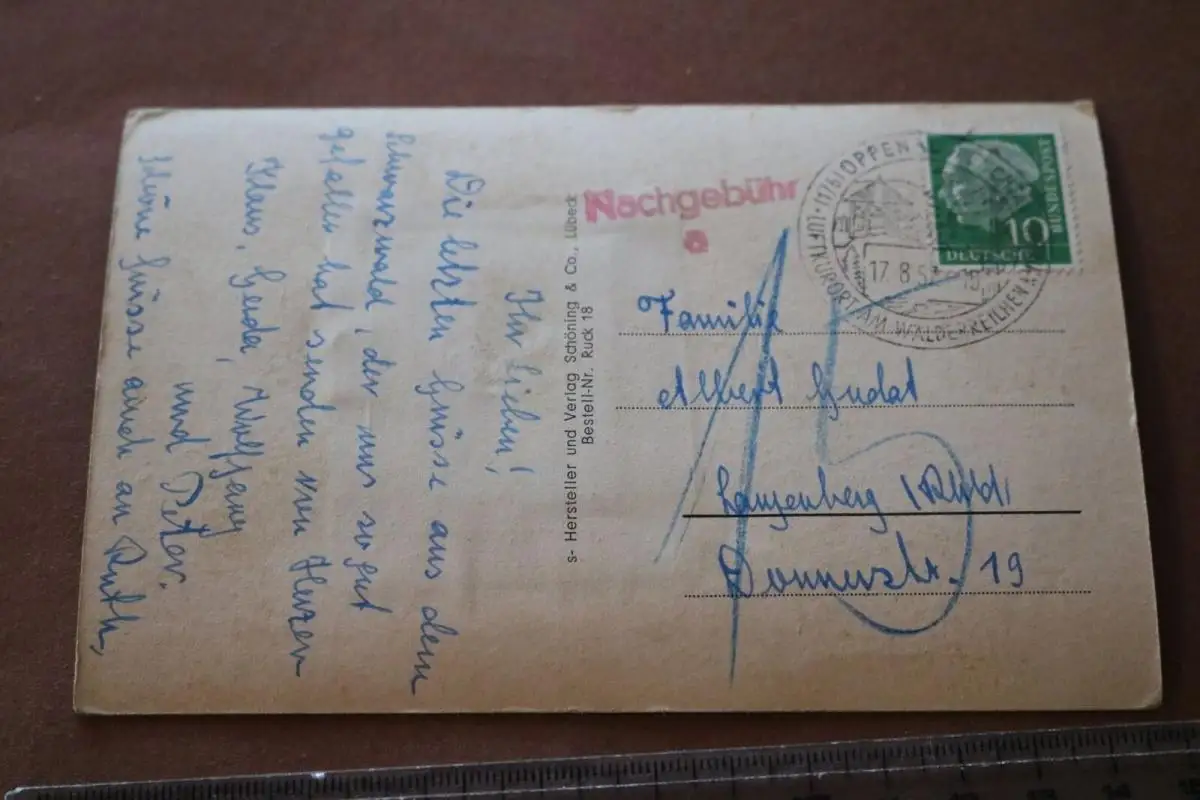 Ihr lieben!
Die letzten Grüsse aus dem
Schwarzwald, der uns so gut
gefallen hat senden von Herzen
Klaus, Gerda, Wolfgang
und Peter.
Schöne Grüsse auch an Ruth,
s- Hersteller und Verlag Schöning & Co., Lübeck
Bestell-Nr. Ruck 18
Nachgebühr
(17b) OPPEN
LUFTKURORT AM
17.8.5
10
DEUTSCHE
BUNDESPOST
15
Familie
Albert Gudat
Langenberg (Rhld)
Donnerstr. 19